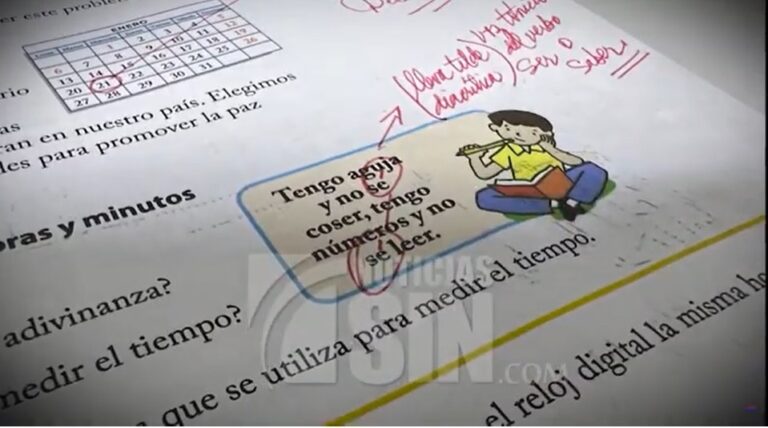 er este problem
ENERO
1 2 3 4 5
6 7 8 9 10 11 12
13 14 15 16 17 18 19
20 21 22 23 24 25 26
27 28 29 30 31
rio
as
ran en nuestro país. Elegimos
les para promover la paz.
(lleva tilde
diacrítica)
voz tónica
del verbo
ser o
saber
Tengo aguja
y no se
coser, tengo
números y no
se leer.
oras y minutos
adivinanza?
medir el tiempo?
que se utiliza para medir el tiempo.
el reloj digital la misma ho
NOTICIAS
SIN
.COM